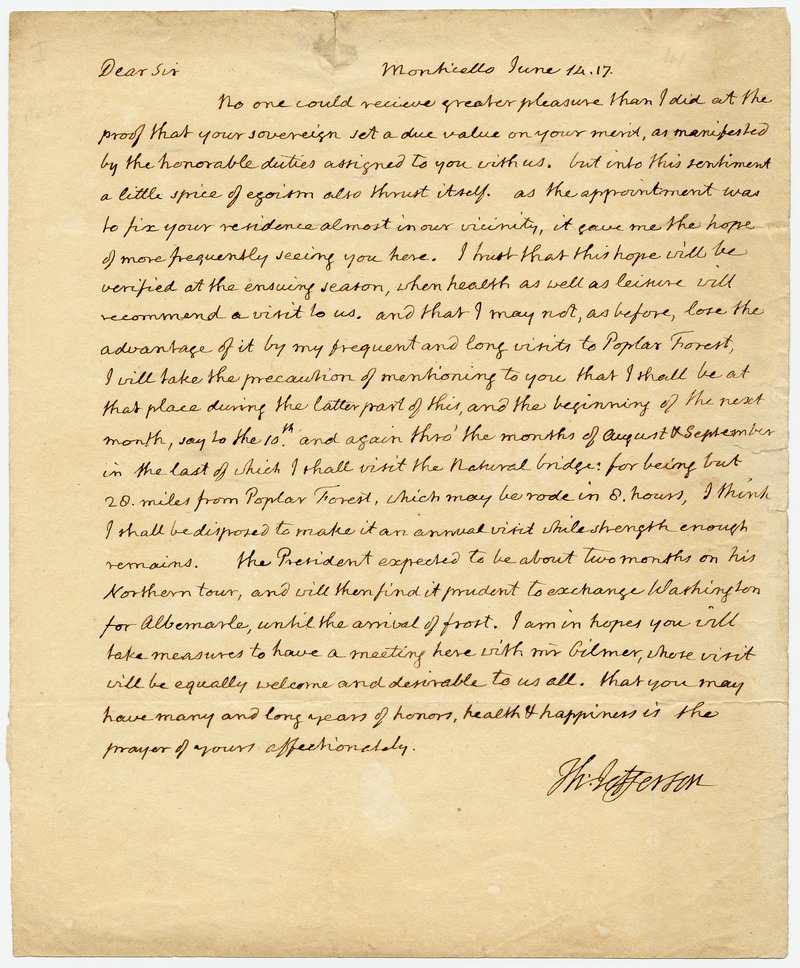 Dear Sir Monticello June 14. 17.
No one could recieve greater pleasure than I did at the
proof that your sovereign set a due value on your merit, as manifested
by the honorable duties assigned to you with us. but into this sentiment
a little spice of egoism also thrust itself. as the appointment was
to fix your residence almost in our vicinity, it gave me the hope
of more frequently seeing you here. I trust that this hope will be
verified at the ensuing season, when health as well as leisure will
recommend a visit to us. and that I may not, as before, lose the
advantage of it by my frequent and long visits to Poplar Forest,
I will take the precaution of mentioning to you that I shall be at
that place during the latter part of this, and the beginning of the next
month, say to the 10th. and again thro' the months of August & September
in the last of which I shall visit the Natural bridge: for being but
28. miles from Poplar Forest, which may be rode in 8. hours, I think
I shall be disposed to make it an annual visit while strength enough
remains. the President expected to be about two months on his
Northern tour, and will then find it prudent to exchange Washington
for Albemarle, until the arrival of frost. I am in hopes you will
take measures to have a meeting here with mr Gilmer, whose visit
will be equally welcome and desirable to us all. that you may
have many and long years of honors, health & happiness is the
prayer of yours affectionately.
Th: Jefferson